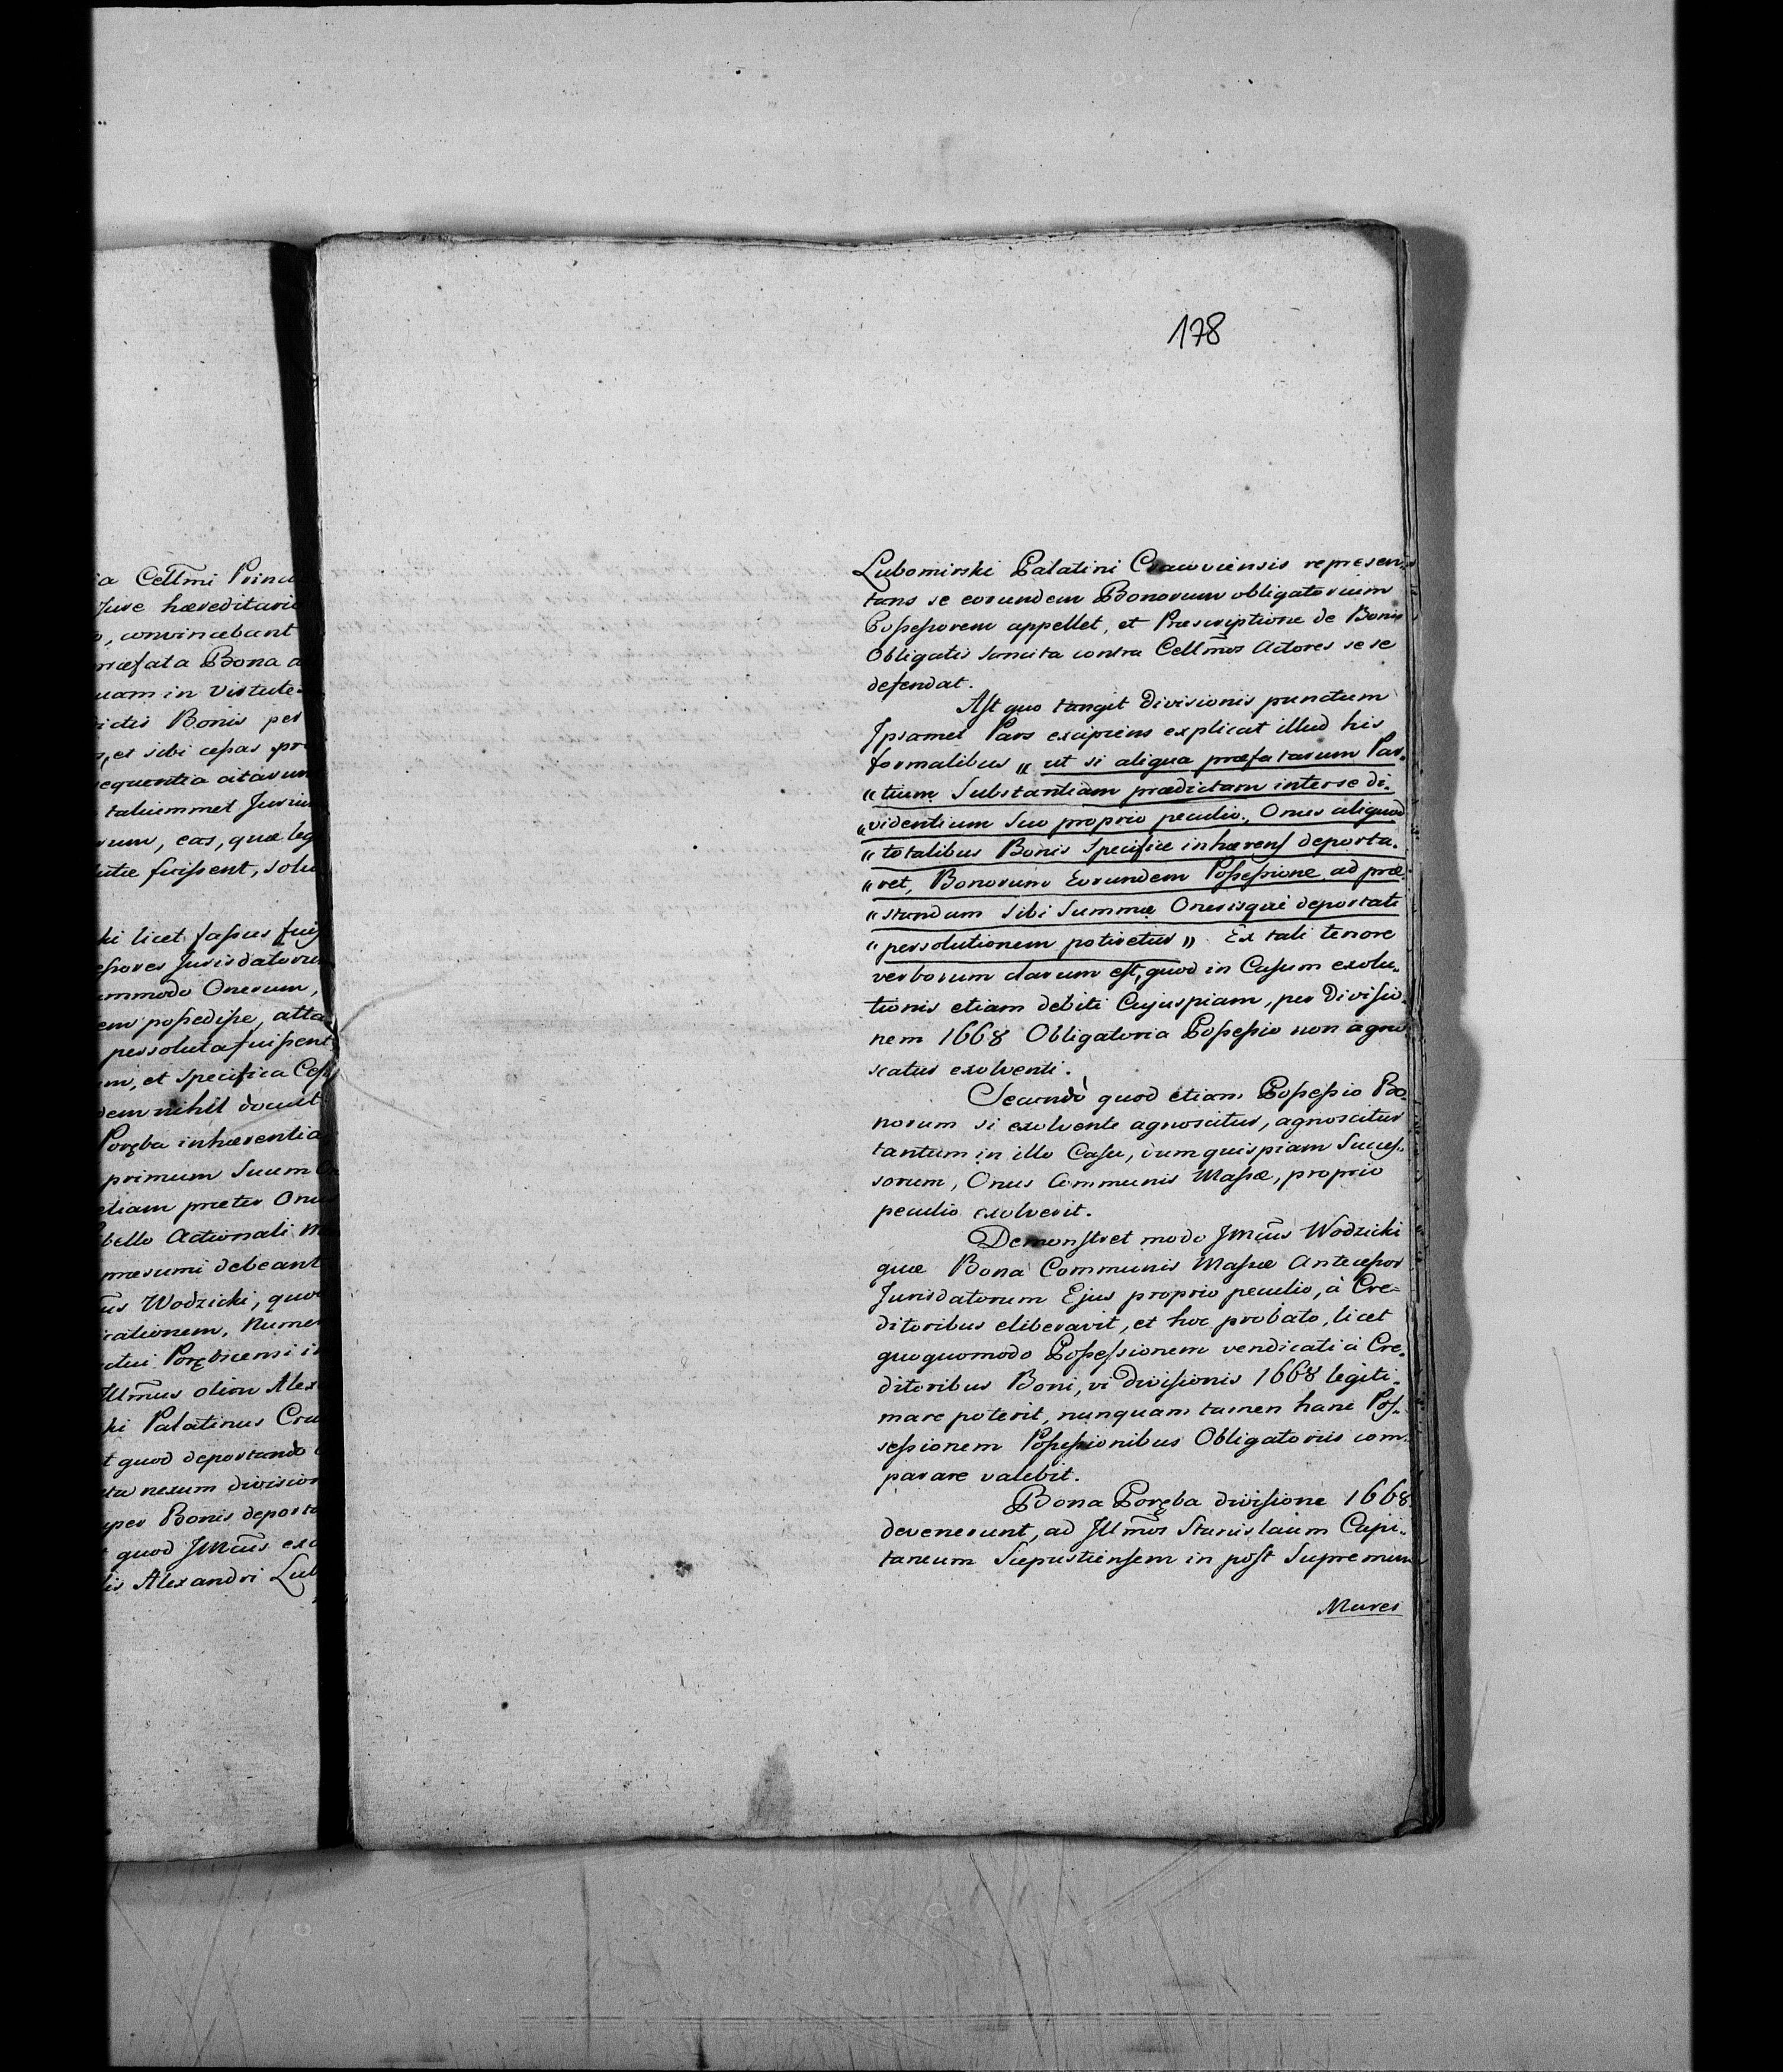 ia Cellm̃i Princi
Jure hæreditari
o, convincebant
præfata Bona a
quam in virtute
dictis Bonis per
et sibi cessas pr
sequentia citarum
taliummet Jurium
rum, eas, quæ leg
lutæ fuissent, solu
ki licet fassus fuis
essores Jurisdatorum
ammodo Onerum,
em possedisse, atta
persoluta fuissent
m, et specifica Cess
dem nihil docuit
Poręba inhærentia
primum Suum On
etiam præter Onus
bello Actionali
præsumi debeant
us Wodzicki, quod
cationem, Nume
ctui Porębicensi in
Illm̃us olim Alex
ki Palatinus Cra
t quod deportando
eta nexum division
uper Bonis deporta
quod Jm̃cũs exc
is Alexandri Lub
178
Lubomirski Palatini Cracoviensis represen-
tans se eorundem Bonorum obligatorium
Possessorem appellet, et Præscriptione de Bonis
Obligatis sancita contra Cellm̃os Actores se se
defendat.
Ast quo tangit Divisionis punctum
Ipsamet Pars excipiens explicat illud his
formalibus „ ut si aliqua præfatarum Par-
„ tium Substantiam prædictam inter se di-
„ videntium Suo proprio peculio, Onus aliquod
„ totalibus Bonis Specifice inhærens deporta-
„ ret, Bonorum Eorundem Possessione ad præ-
„ standam sibi Summæ Onerisque deportati
„ persolutionem potiretur „ Ex tali tenore
verborum clarum est, quod in Casum exolu-
tionis etiam debiti Cujuspiam, per Divisio-
nem 1668 Obligatoria Possessio non agno-
scatur exolventi.
Secundò quod etiam Possessio Bo-
norum si exolvente agnoscitur, agnoscitur
tantum in illo Casu, dum quispiam Succes-
sorum, Onus Communis Massæ, proprio
peculio exolverit.
Demonstret modo Jm̃cũs Wodzicki
quæ Bona Communis Massæ Antecessor
Jurisdatorum Ejus proprio peculio, à Cre-
ditoribus eliberavit, et hoc probato, licet
quoquomodo Possessionem vendicati à Cre-
ditoribus Boni, vi Divisionis 1668 legiti-
mare poterit, nunquam tamen hanc Pos-
sessionem Possessionibus Obligatoriis com-
parare valebit.
Bona Poręba divisione 1668
devenerunt, ad Illm̃os Stanislaum Capi-
taneum Scepusiensem in post Supremum
Mares